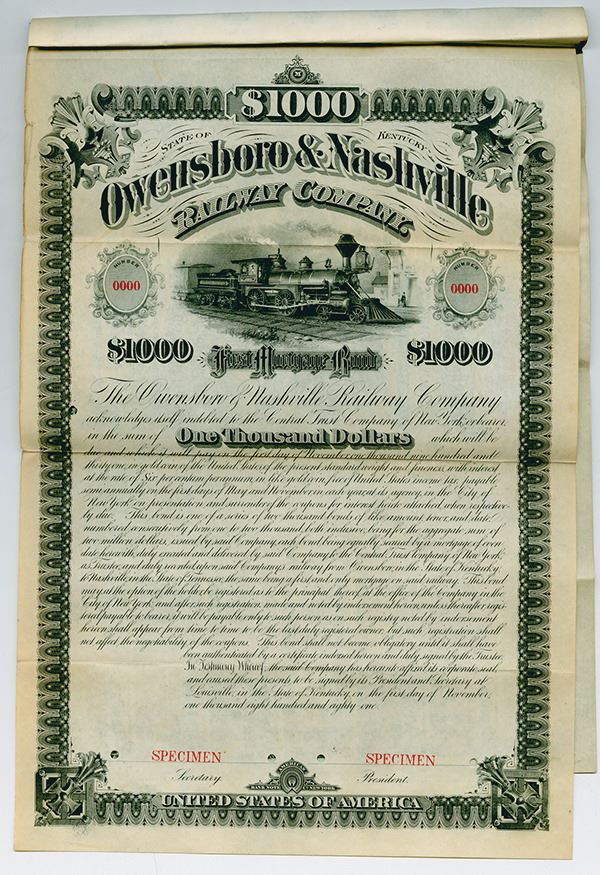 $1000
STATE OF KENTUCKY
Owensboro & Nashville
RAILWAY COMPANY.
NUMBER
0000
NUMBER
0000
$1000 First Mortgage Bond $1000
The Owensboro & Nashville Railway Company
acknowledges itself indebted to the Central Trust Company of New York, or bearer,
in the sum of One Thousand Dollars which will be
due and which it will pay on the first day of November, one thousand nine hundred and
thirty one, in gold coin of the United States of the present standard weight and fineness, with interest
at the rate of Six per centum per annum, in like gold coin, free of United States income tax, payable
semi-annually on the first days of May and November in each year, at its agency, in the City of
New York, on presentation and surrender of the coupons for interest hereto attached, when respective-
ly due. This bond is one of a series of two thousand bonds of like amount, tenor, and date,
numbered consecutively from one to two thousand, both inclusive, being for the aggregate sum of
two million dollars, issued by said Company, each bond being equally secured by a mortgage of even
date herewith, duly executed and delivered by said Company, to the Central Trust Company of New York,
as Trustee, and duly recorded, upon said Company's railway from Owensboro, in the State of Kentucky,
to Nashville, in the State of Tennessee, the same being a first and only mortgage on said railway. This bond
may at the option of the holder, be registered as to the principal thereof at the office of the Company in the
City of New York, and after such registration, made and noted by endorsement hereon, unless thereafter regis-
tered payable to bearer, it will be payable only to such person as on such registry noted by endorsement
hereon shall appear from time to time to be the last duly registered owner, but such registration shall
not affect the negotiability of the coupons. This bond shall not become obligatory until it shall have
been authenticated by a certificate endorsed hereon and duly signed by the Trustee.
In Testimony Whereof, the said Company has hereunto affixed its corporate seal,
and caused these presents to be signed by its President and Secretary at
Louisville, in the State of Kentucky, on the first day of November,
one thousand eight hundred and eighty-one.
SPECIMEN SPECIMEN
Secretary. President.
AMERICAN
BANK NOTE CO. NEW YORK
UNITED STATES OF AMERICA